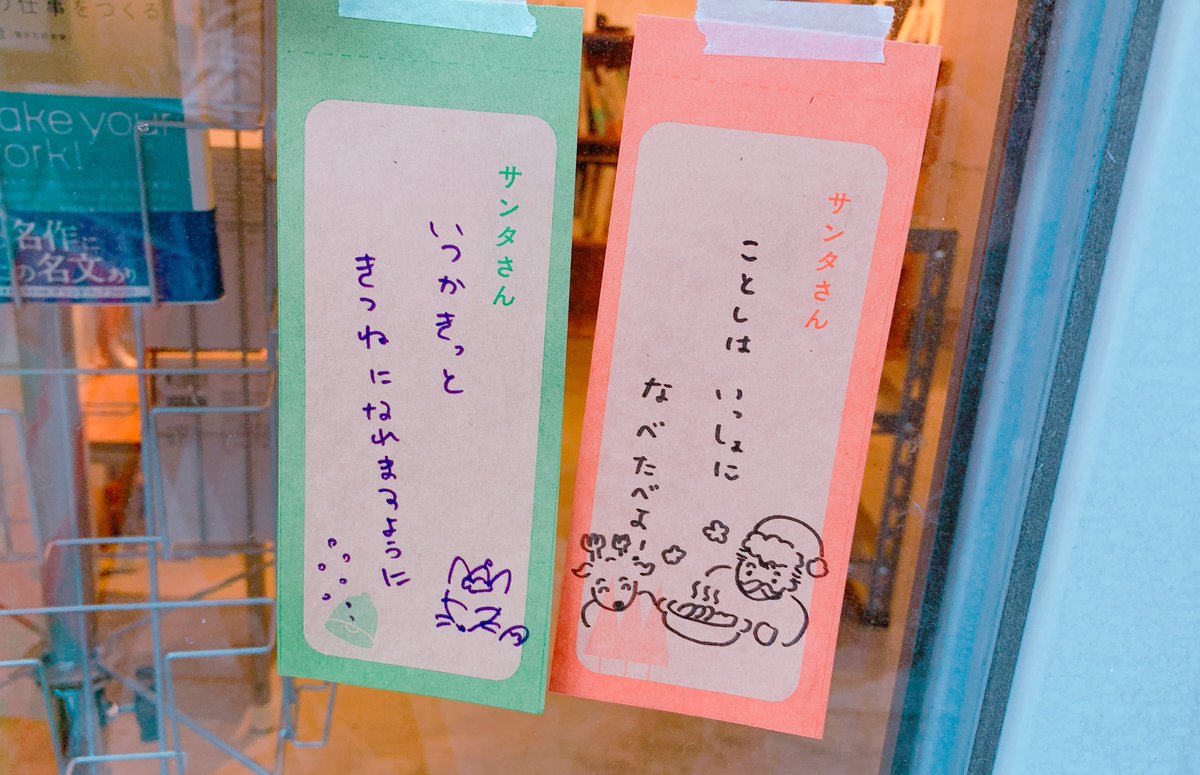 の仕事をつくる
ake your
ork!
名作に
この名文あり
サンタさん
いつかきっと
きつねになれますように
サンタさん
ことしは いっしょに
なべたべよー